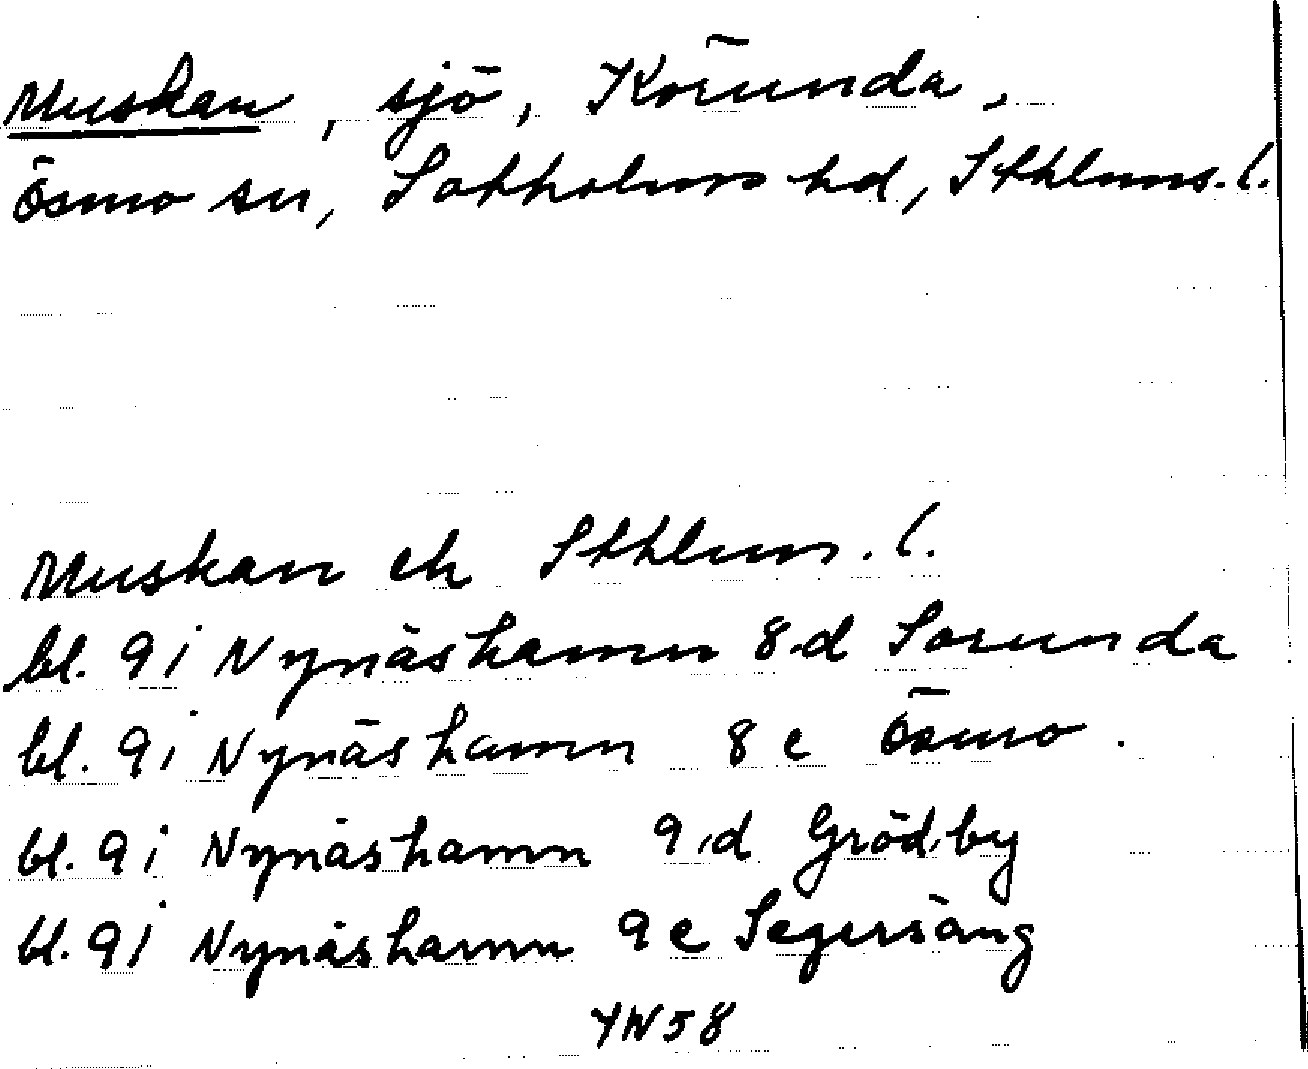 Muskan, sjö, Körunda,
Ösmo sn, Sotholms hd, Sthlms. l.
Muskan ek Sthlm. l.
bl. 9i Nynäshamn 8 d Sorunda
bl. 9i Nynäshamn 8 e Ösmo.
bl. 9i Nynäshamn 9 d Grödby
bl. 9i Nynäshamn 9 e Segersäng
YN58